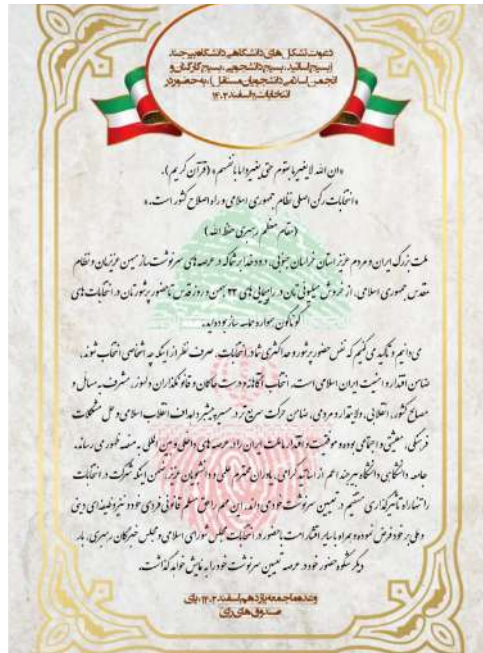 دعوت تشکل های دانشگاهی دانشگاه بیرجند
(بسیج اساتید، بسیج دانشجویی، بسیج کارکنان و
انجمن اسلامی دانشجویان مستقل)، به حضور در
انتخابات ۱۱ اسفند ۱۴۰۲
«ان الله لا یغیر ما بقوم حتی یغیروا ما بانفسهم» (قرآن کریم).
«انتخابات رکن اصلی نظام جمهوری اسلامی و راه اصلاح کشور است.»
(مقام معظم رهبری حفظ الله)
ملت بزرگ ایران و مردم عزیز استان خراسان جنوبی، درود خدا بر شما که در عرصه های سرنوشت ساز میهن عزیزمان و نظام
مقدس جمهوری اسلامی، از خروش میلیونی تان در راهپیمایی های ۲۲ بهمن و روز قدس تا حضور پرشورتان در انتخابات های
گوناگون همواره حماسه ساز بوده اید.
می دانیم و تاکید می کنیم که نفس حضور پرشور و حداکثری شما در انتخابات، صرف نظر از اینکه چه اشخاصی انتخاب شوند،
ضامن اقتدار و امنیت ایران اسلامی است. انتخاب آگاهانه و درست حاکمان و قانونگذاران دلسوز، مشرف به مسائل و
مصالح کشور، انقلابی، ولایتمدار و مردمی، ضامن حرکت سریع تر در مسیر پیشبرد اهداف انقلاب اسلامی و حل مشکلات
فرهنگی، معیشتی و اجتماعی بوده و موفقیت و اقتدار ملت ایران را در عرصه های داخلی و بین المللی به منصه ظهور می رساند.
جامعه دانشگاهی دانشگاه بیرجند اعم از اساتید گرامی، یاوران محترم علمی و دانشجویان عزیز، ضمن اینکه شرکت در انتخابات
را تنها راه تاثیرگذاری مستقیم در تعیین سرنوشت خود می داند، این مهم را حق مسلم قانونی فردی خود و نیز وظیفه ای دینی
و ملی بر خود فرض نموده و همراه با سایر اقشار امت با حضور در انتخابات مجلس شورای اسلامی و مجلس خبرگان رهبری، بار
دیگر شکوه حضور خود در عرصه تعیین سرنوشت خود را به نمایش خواهد گذاشت.
وعده ما جمعه یازدهم اسفند ۱۴۰۲، پای
صندوق های رای